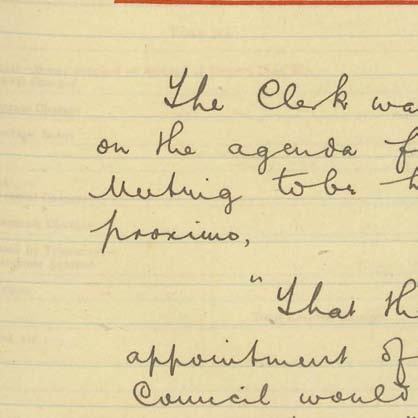 The Clerk wa
on the agenda f
Meeting to be h
proximo,
"That th
appointment of
Council would